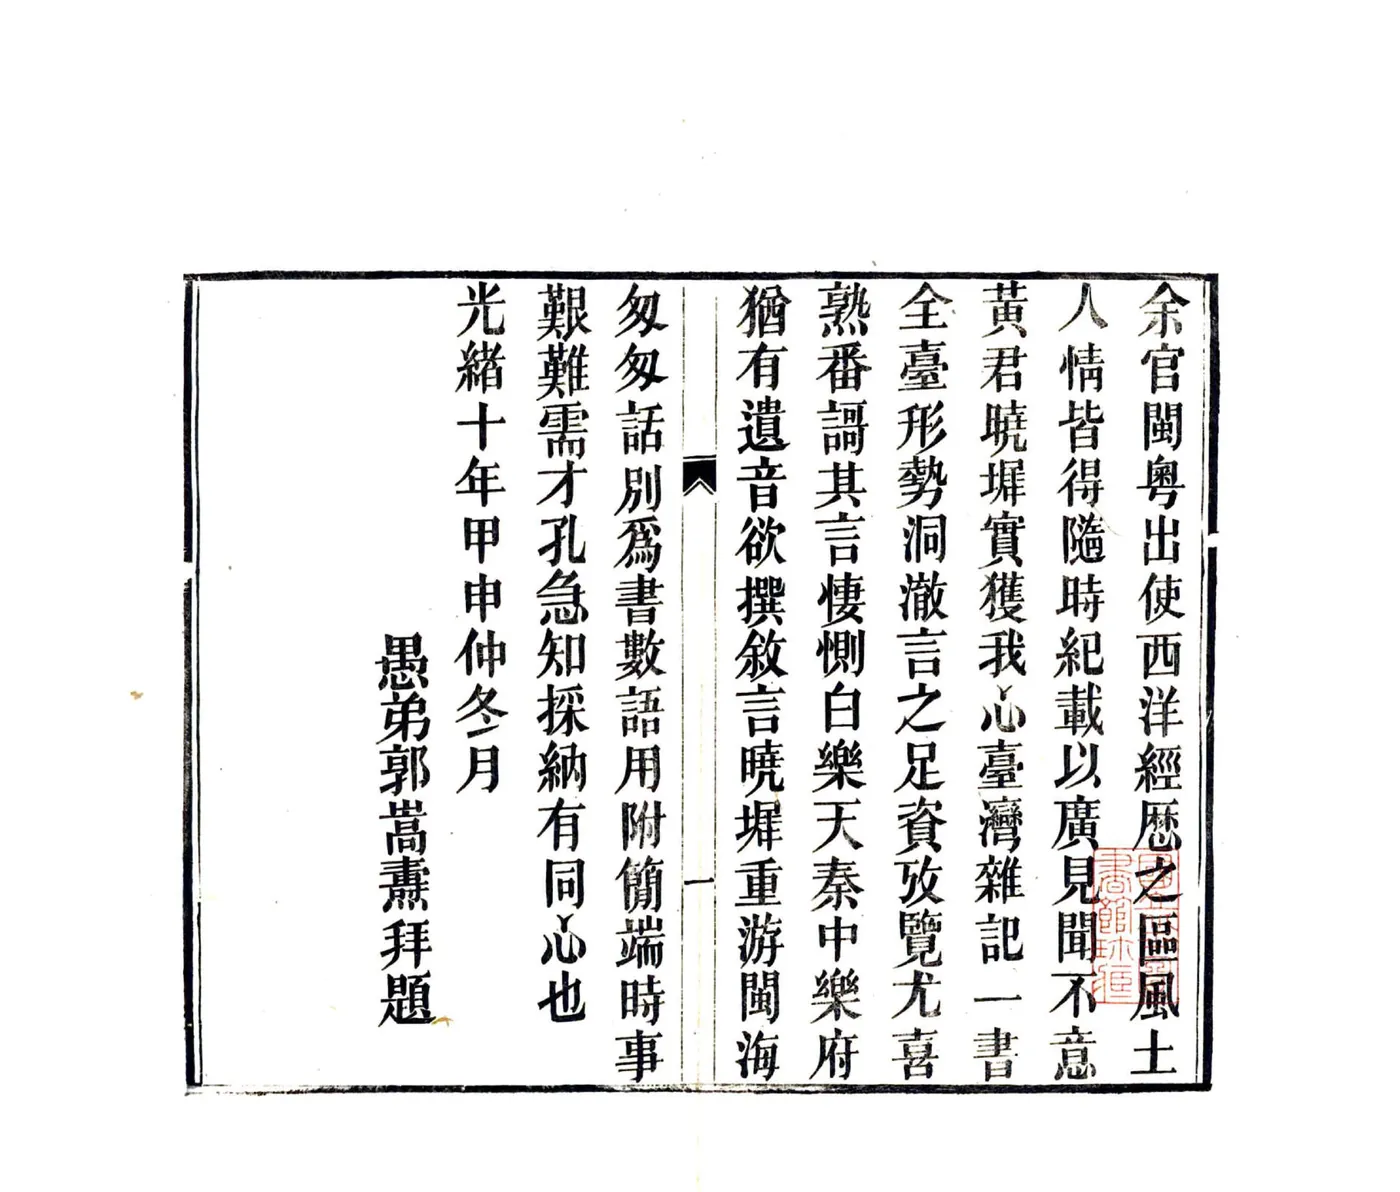 余官閩粵出使西洋經歷之區風土
人情皆得隨時紀載以廣見聞不意
黃君曉墀實獲我心臺灣雜記一書
全臺形勢洞澈言之足資攷覽尤喜
熟番謌其言悽惻白樂天秦中樂府
猶有遺音欲撰敘言曉墀重游閩海
一
匆匆話別為書數語用附簡端時事
艱難需才孔急知採納有同心也
光緒十年甲申仲冬月
愚弟郭嵩燾拜題